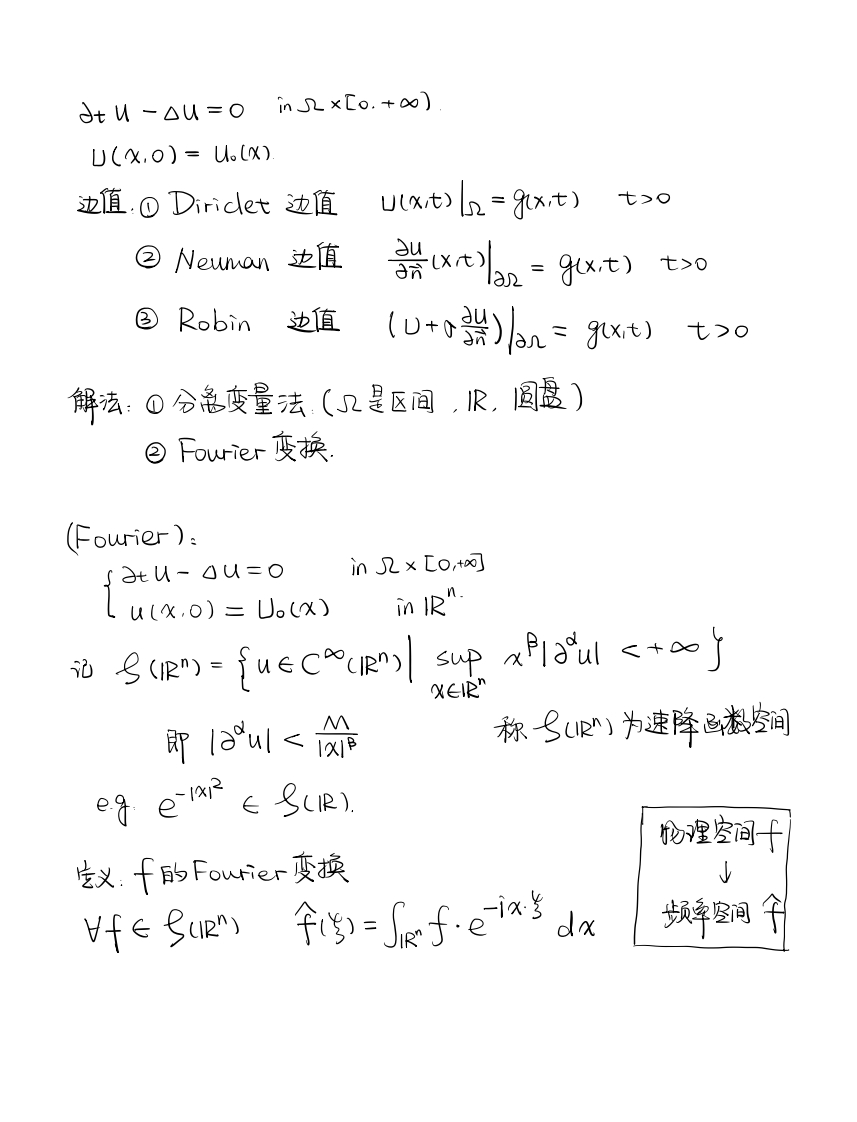 ∂t u − Δu = 0 in Ω × [0, +∞).
u(x,0) = u₀(x).
边值: ① Diriclet 边值 u(x,t)|_Ω = g(x,t) t>0
② Neuman 边值 ∂u/∂n⃗ (x,t)|_∂Ω = g(x,t) t>0
③ Robin 边值 (u + σ ∂u/∂n⃗)|_∂Ω = g(x,t) t>0
解法: ① 分离变量法. (Ω是区间, ℝ, 圆盘)
② Fourier 变换.
(Fourier):
{ ∂t u − Δu = 0 in Ω × [0,+∞]
u(x,0) = u₀(x) in ℝⁿ.
记 𝒮(ℝⁿ) = { u ∈ C^∞(ℝⁿ) | sup_{x∈ℝⁿ} x^β |∂^α u| < +∞ }
即 |∂^α u| < M/|x|^β 称 𝒮(ℝⁿ) 为速降函数空间
e.g. e^{-|x|²} ∈ 𝒮(ℝ).
物理空间 f
↓
频率空间 f̂
定义: f 的 Fourier 变换
∀f ∈ 𝒮(ℝⁿ) f̂(ξ) = ∫_{ℝⁿ} f · e^{-ix·ξ} dx